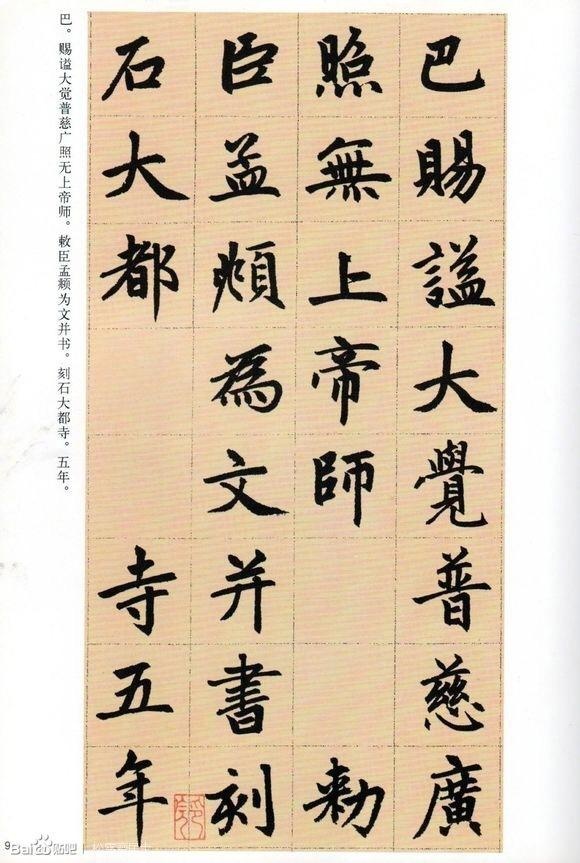 巴賜諡大覺普慈廣
照無上帝師 敕
臣孟頫為文并書刻
石大都 寺五年
巴。赐谥大觉普慈广照无上帝师。敕臣孟頫为文并书。刻石大都寺。五年。
9
Bai 贴吧